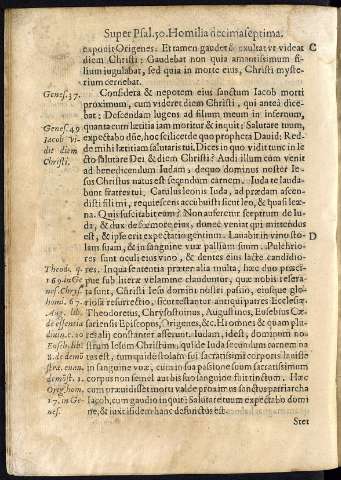 Super Psal. 50. Homilia decimaseptima.
exponit Origenes: Et tamen gaudet & exultat vt videat C
diem Christi: Gaudebat non quia amantissimum fi-
lium iugulabat, sed quia in morte eius, Christi myste-
rium cernebat.
Genes. 37. Considera & nepotem eius sanctum Iacob morti
proximum, cum videret diem Christi, qui antea dice-
bat: Descendam lugens ad filium meum in infernum,
Genes. 49 quanta cum lætitia iam moritur & inquit: Salutare tuum,
Iacob vi- expectabo dñe, hoc scilicet de quo propheta Dauid: Red-
dit diem de mihi lætitiam salutaris tui. Dices in quo vidit tunc in le
Christi. cto salutare Dei & diem Christi? Audi illum cum venit
ad benedicendum Iudam, de quo dominus noster Ie-
sus Christus natus est secundum carnem. Iuda te lauda-
bunt fratres tui, Catulus leonis Iuda, ad prædam ascen-
disti fili mi, requiescens accubuisti sicut leo, & quasi leæ-
na. Quis suscitabit eum? Non auferetur sceptrum de Iu-
da, & dux de fœmore eius, donec veniat qui mittendus
est, & ipse erit expectatio gentium. Lauabit in vino sto- D
lam suam, & in sanguine vuæ pallium suum. Pulchrio-
res sunt oculi eius vino, & dentes eius lacte candidio-
Theodo. q. res. In qua sententia præter alia multa, hæc duo præci-
in Ge pue sub litera velamine clauduntur, quæ nobis resera-
nes. Chrys. ta sunt, Christi scilicet domini nostri passio, eiusque glo-
homi. 67. riosa resurrectio, sicut testantur antiqui patres Ecclesiæ.
Aug. lib. Theodoretus, Chrysostomus, Augustinus, Eusebius Cæ-
de essentia sariensis Episcopus, Origenes, &c. Hi omnes & quam plu-
diuin. c. 10 res alij constanter asserunt. Iudam, idest, dominum no-
Euseb. lib: strum Iesum Christum, qui de Iuda secundum carnem na
8. de demõ tus est, tum quidẽ stolam sui sacratissimi corporis lauisse
in sanguine vuæ, cum in sua passione suum sacratissimum
corpus non semel aut bis suo sanguine fuit tinctum. Hæc
Orig. homi cum præuidisset morti valde proximus sanctus patriarcha
17. in Ge- Iacob, cum gaudio inquit: Salutare tuum expectabo domi
nes. ne, & iuxta fidem hanc defunctus est.
Stet